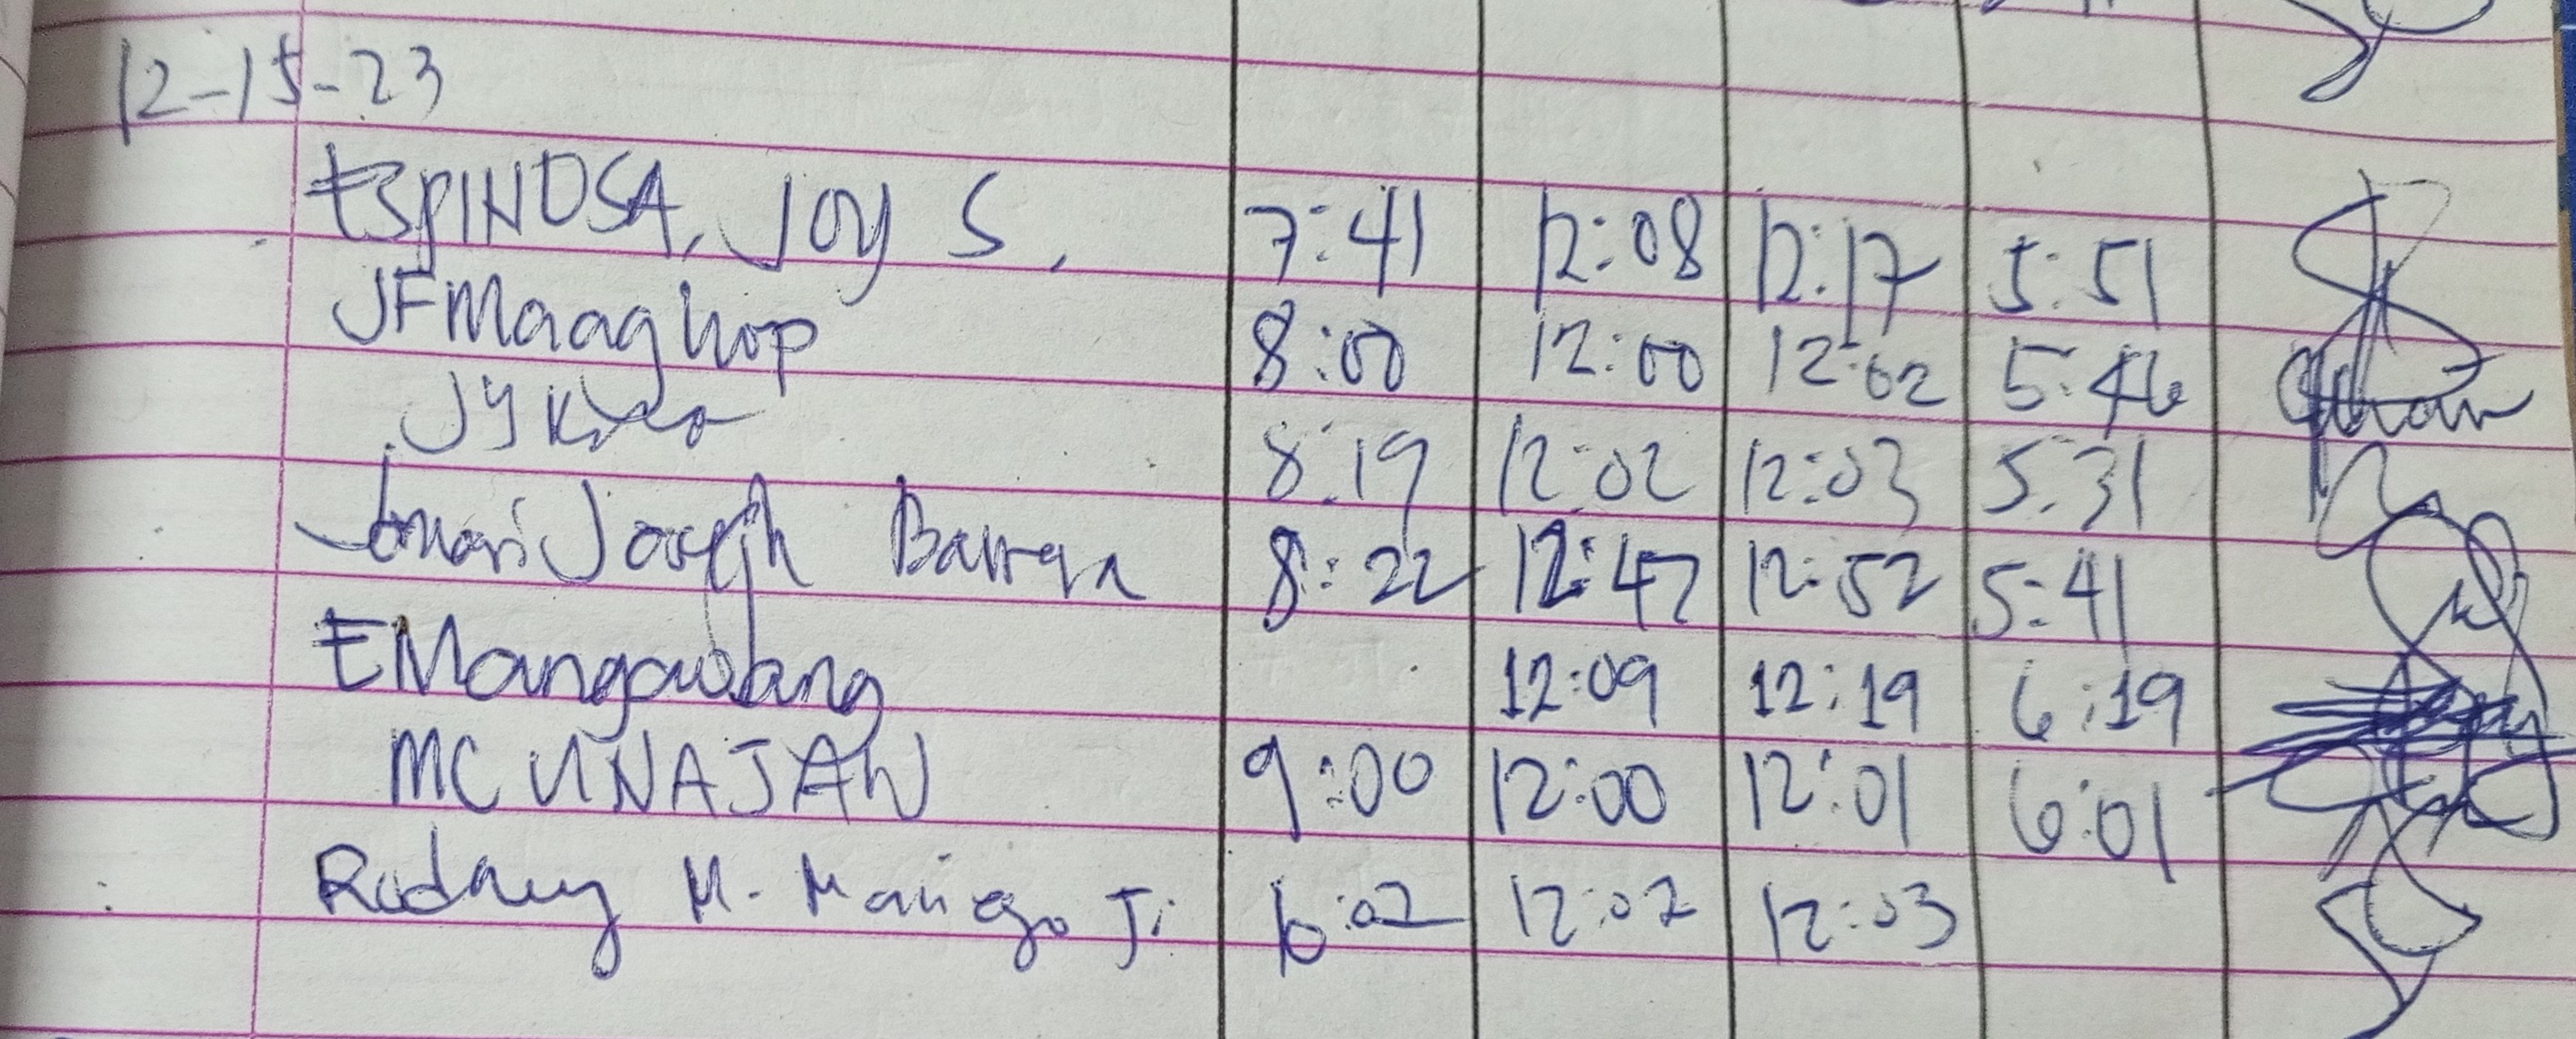 12-15-23
ESPINOSA, Joy S. 7:41 12:08 12:17 5:51
JFMaaghop 8:00 12:00 12:02 5:46
JY 8:19 12:02 12:03 5:31
Jomari Joseph Barrera 8:22 12:47 12:52 5:41
EMangawang 12:09 12:19 6:19
MC UNAJAN 9:00 12:00 12:01 6:01
Rodney M. Maniego Jr 6:02 12:02 12:03